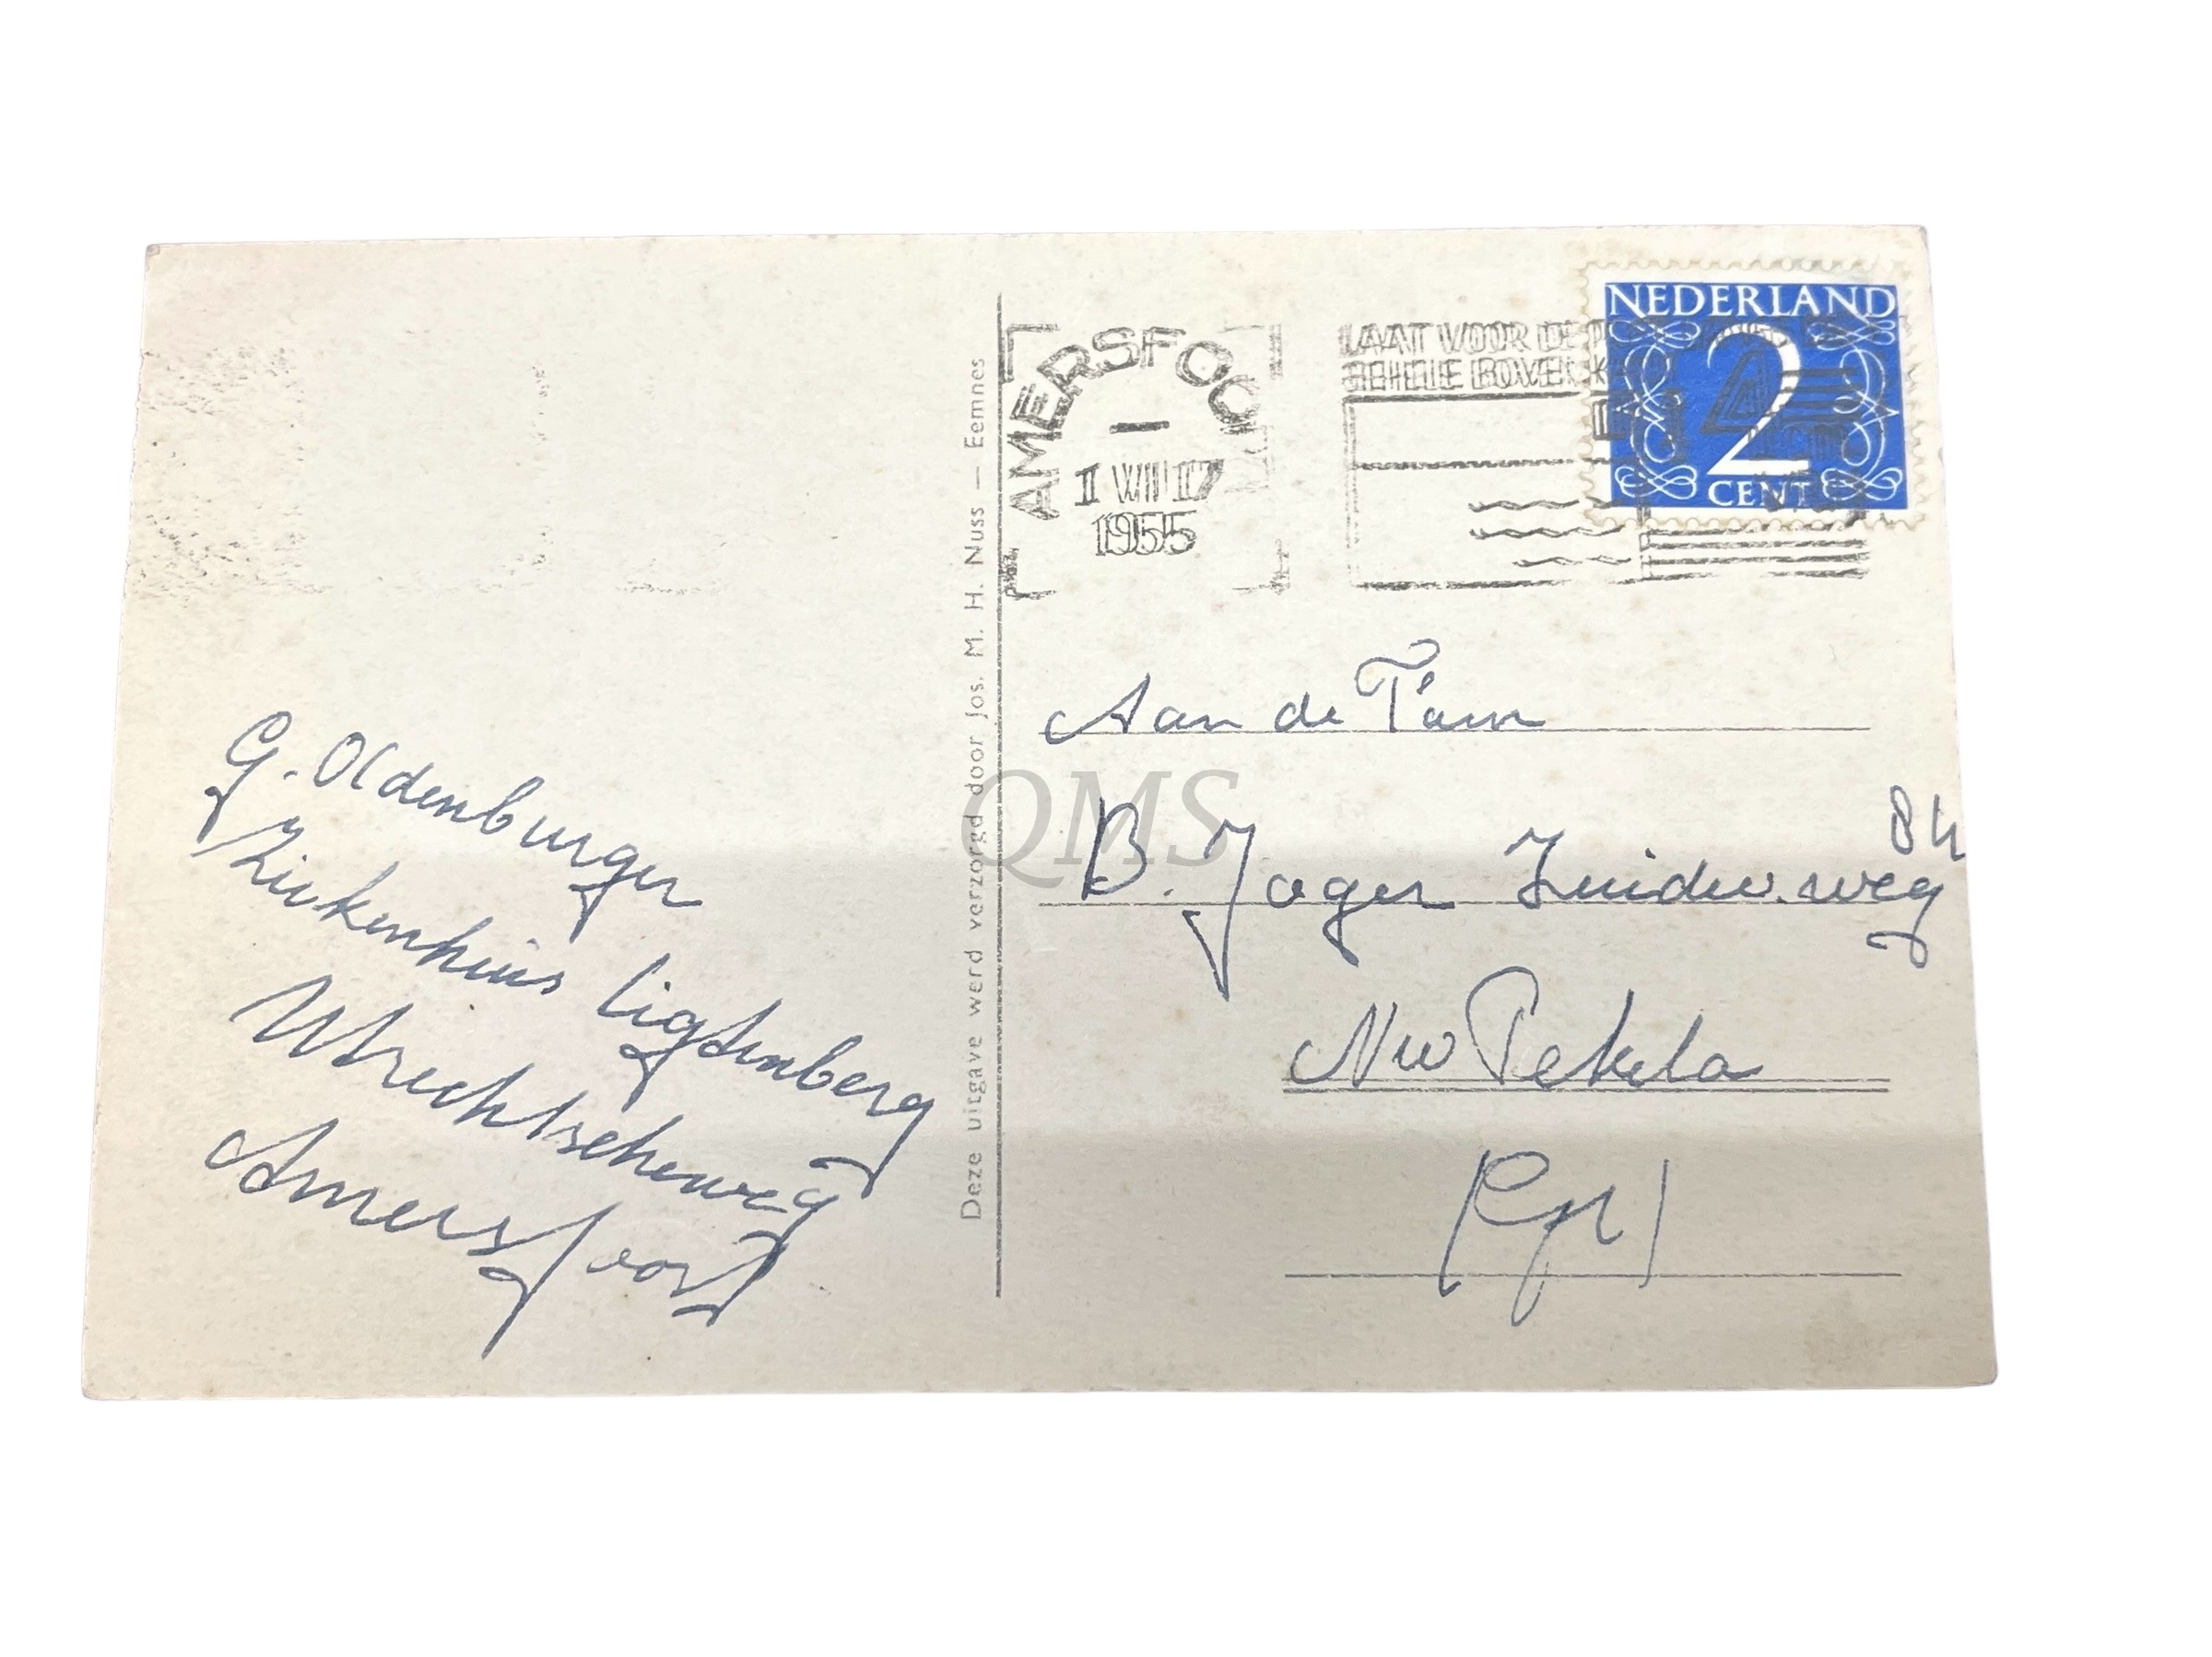 G. Oldenburger
Ziekenhuis Ligtenberg
Utrechtscheweg
Amersfoort
Deze uitgave werd verzorgd door Jos. M. H. Nuss — Eemnes
AMERSFOO
1 VIII 17
1955
LAAT VOOR DE
GEHELE BOVEN
NEDERLAND
2
CENT
Aan de Fam
B. Jager Zuiderweg
84
Nw Pekela
(Gr)
QMS